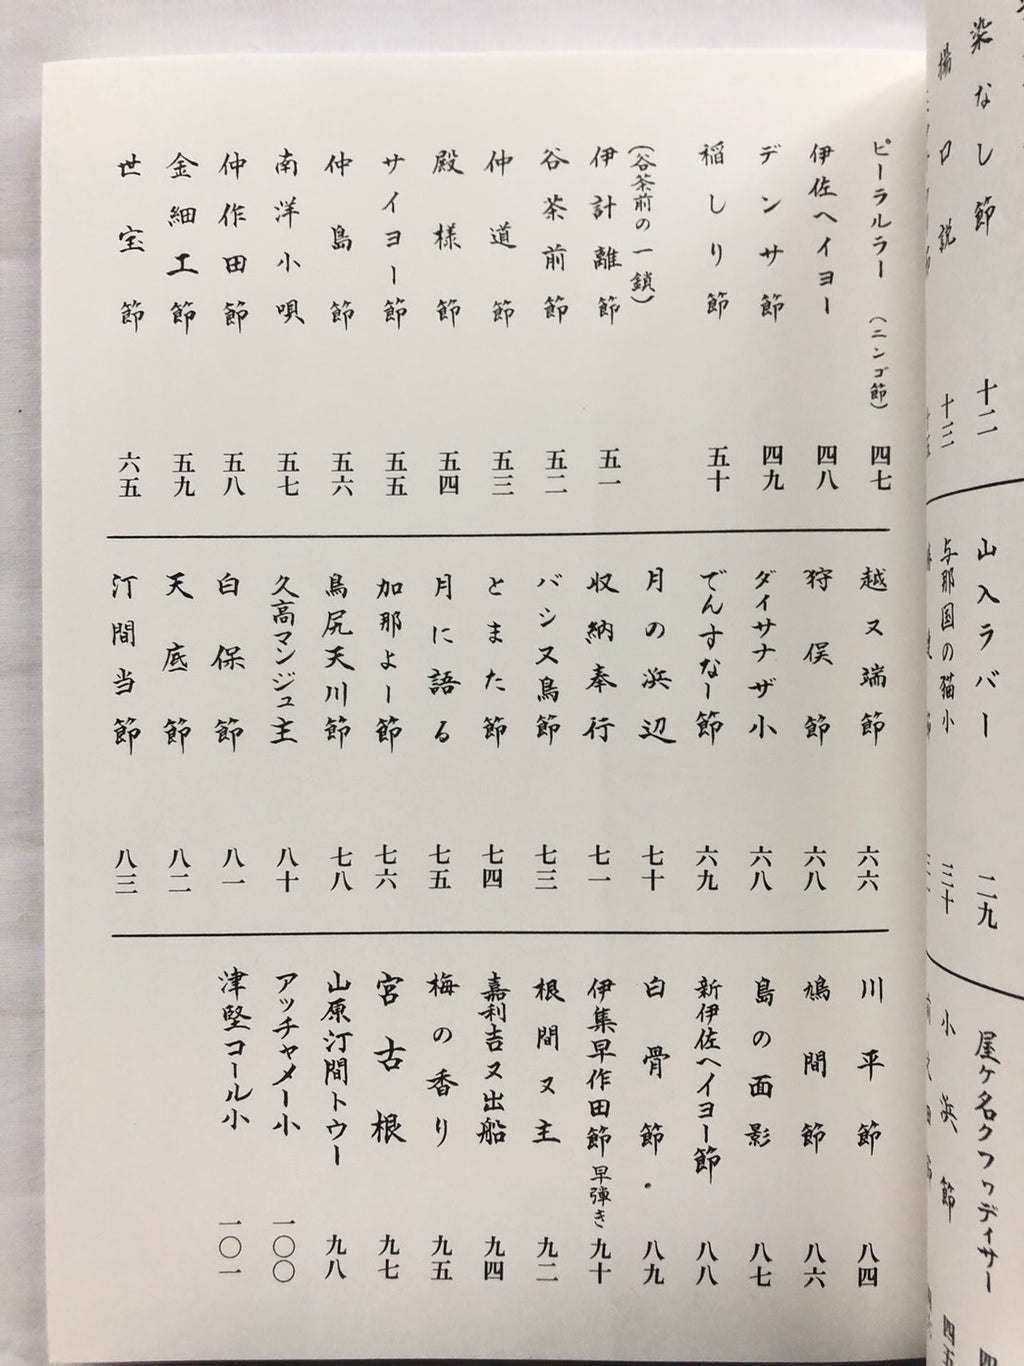 染なし節 十二
揚口説 十三
山入ラバー 二九
与那国の猫小 三十
屋ヶ名クワディサー
小浜節 四五
ピーラルラー (ニンゴ節) 四七
伊佐ヘイヨー 四八
デンサ節 四九
稲しり節 五十
(谷茶前の一鎖)
伊計離節 五一
谷茶前節 五二
仲道節 五三
殿様節 五四
サイヨー節 五五
仲島節 五六
南洋小唄 五七
仲作田節 五八
金細工節 五九
世宝節 六五
越ヌ端節 六六
狩俣節 六八
ダイサナザ小 六八
でんすなー節 六九
月の浜辺 七十
収納奉行 七一
バシヌ鳥節 七三
とまた節 七四
月に語る 七五
加那よー節 七六
鳥尻天川節 七八
久高マンジュ主 八十
白保節 八一
天底節 八二
汀間当節 八三
川平節 八四
鳩間節 八六
島の面影 八七
新伊佐ヘイヨー節 八八
白骨節. 八九
伊集早作田節 早弾き 九十
根間ヌ主 九二
嘉利吉ヌ出船 九四
梅の香り 九五
宮古根 九七
山原汀間トウー 九八
アッチャメー小 一〇〇
津堅コール小 一〇一